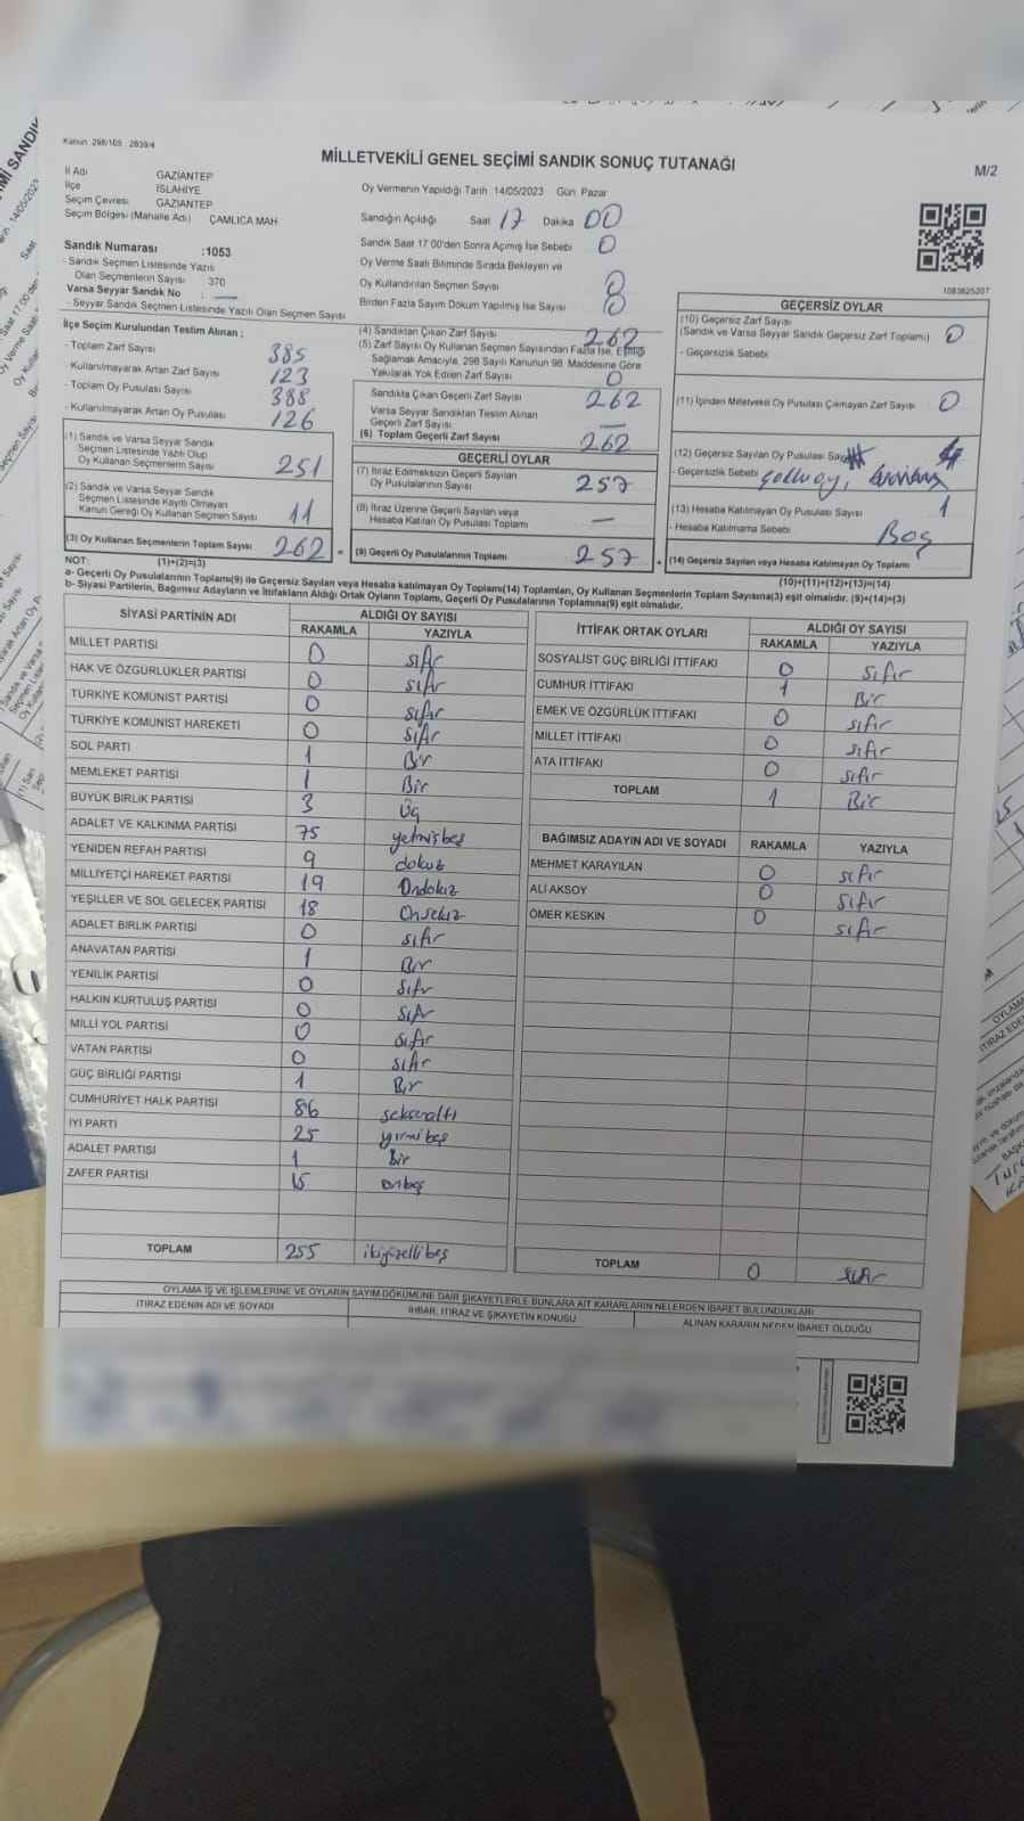 Kanun 298/105 2839/4
MİLLETVEKİLİ GENEL SEÇİMİ SANDIK SONUÇ TUTANAĞI
M/2
İl Adı GAZİANTEP
İlçe İSLAHİYE
Seçim Çevresi GAZİANTEP
Seçim Bölgesi (Mahalle Adı) ÇAMLICA MAH
Sandık Numarası :1053
- Sandık Seçmen Listesinde Yazılı
Olan Seçmenlerin Sayısı 370
Varsa Seyyar Sandık No :
- Seyyar Sandık Seçmen Listesinde Yazılı Olan Seçmen Sayısı
Oy Vermenin Yapıldığı Tarih 14/05/2023 Gün: Pazar
Sandığın Açıldığı Saat 17 Dakika 00
Sandık Saat 17:00'den Sonra Açılmış İse Sebebi 0
Oy Verme Saati Bitiminde Sırada Bekleyen ve
Oy Kullandırılan Seçmen Sayısı 0
Birden Fazla Sayım Döküm Yapılmış İse Sayısı 0
1083625207
İlçe Seçim Kurulundan Teslim Alınan :
- Toplam Zarf Sayısı 385
- Kullanılmayarak Artan Zarf Sayısı 123
- Toplam Oy Pusulası Sayısı 388
- Kullanılmayarak Artan Oy Pusulası 126
(1) Sandık ve Varsa Seyyar Sandık
Seçmen Listesinde Yazılı Olup
Oy Kullanan Seçmenlerin Sayısı 251
(2) Sandık ve Varsa Seyyar Sandık
Seçmen Listesinde Kayıtlı Olmayan
Kanun Gereği Oy Kullanan Seçmen Sayısı 11
(3) Oy Kullanan Seçmenlerin Toplam Sayısı 262 =
(4) Sandıktan Çıkan Zarf Sayısı 262
(5) Zarf Sayısı Oy Kullanan Seçmen Sayısından Fazla İse, Eşitliği
Sağlamak Amacıyla, 298 Sayılı Kanunun 98. Maddesine Göre
Yakılarak Yok Edilen Zarf Sayısı 0
Sandıkta Çıkan Geçerli Zarf Sayısı 262
Varsa Seyyar Sandıktan Teslim Alınan
Geçerli Zarf Sayısı —
(6) Toplam Geçerli Zarf Sayısı 262
GEÇERLİ OYLAR
(7) İtiraz Edilmeksizin Geçerli Sayılan
Oy Pusulalarının Sayısı 257
(8) İtiraz Üzerine Geçerli Sayılan veya
Hesaba Katılan Oy Pusulası Toplamı —
(9) Geçerli Oy Pusulalarının Toplamı 257 +
GEÇERSİZ OYLAR
(10) Geçersiz Zarf Sayısı
(Sandık ve Varsa Seyyar Sandık Geçersiz Zarf Toplamı) 0
- Geçersizlik Sebebi
(11) İçinden Milletvekili Oy Pusulası Çıkmayan Zarf Sayısı 0
(12) Geçersiz Sayılan Oy Pusulası Sayısı 4
- Geçersizlik Sebebi
(13) Hesaba Katılmayan Oy Pusulası Sayısı 1
- Hesaba Katılmama Sebebi Boş
(14) Geçersiz Sayılan veya Hesaba Katılmayan Oy Toplamı
(10)+(11)+(12)+(13)=(14)
NOT: (1)+(2)=(3)
a- Geçerli Oy Pusulalarının Toplamı(9) ile Geçersiz Sayılan veya Hesaba katılmayan Oy Toplamı(14) Toplamları, Oy Kullanan Seçmenlerin Toplam Sayısına(3) eşit olmalıdır. (9)+(14)=(3)
b- Siyasi Partilerin, Bağımsız Adayların ve İttifakların Aldığı Ortak Oyların Toplamı, Geçerli Oy Pusulalarının Toplamına(9) eşit olmalıdır.
SİYASİ PARTİNİN ADI ALDIĞI OY SAYISI
RAKAMLA YAZIYLA
MİLLET PARTİSİ 0 sıfır
HAK VE ÖZGÜRLÜKLER PARTİSİ 0 sıfır
TÜRKİYE KOMÜNİST PARTİSİ 0 sıfır
TÜRKİYE KOMÜNİST HAREKETİ 0 sıfır
SOL PARTİ 1 Bir
MEMLEKET PARTİSİ 1 Bir
BÜYÜK BİRLİK PARTİSİ 3 üç
ADALET VE KALKINMA PARTİSİ 75 yetmişbeş
YENİDEN REFAH PARTİSİ 9 dokuz
MİLLİYETÇİ HAREKET PARTİSİ 19 Ondokuz
YEŞİLLER VE SOL GELECEK PARTİSİ 18 Onsekiz
ADALET BİRLİK PARTİSİ 0 sıfır
ANAVATAN PARTİSİ 1 Bir
YENİLİK PARTİSİ 0 sıfır
HALKIN KURTULUŞ PARTİSİ 0 sıfır
MİLLİ YOL PARTİSİ 0 sıfır
VATAN PARTİSİ 0 sıfır
GÜÇ BİRLİĞİ PARTİSİ 1 Bir
CUMHURİYET HALK PARTİSİ 86 seksenaltı
İYİ PARTİ 25 yirmibeş
ADALET PARTİSİ 1 bir
ZAFER PARTİSİ 15 onbeş
TOPLAM 255 ikiyüzellibeş
İTTİFAK ORTAK OYLARI ALDIĞI OY SAYISI
RAKAMLA YAZIYLA
SOSYALİST GÜÇ BİRLİĞİ İTTİFAKI 0 sıfır
CUMHUR İTTİFAKI 1 Bir
EMEK VE ÖZGÜRLÜK İTTİFAKI 0 sıfır
MİLLET İTTİFAKI 0 sıfır
ATA İTTİFAKI 0 sıfır
TOPLAM 1 Bir
BAĞIMSIZ ADAYIN ADI VE SOYADI RAKAMLA YAZIYLA
MEHMET KARAYILAN 0 sıfır
ALİ AKSOY 0 sıfır
ÖMER KESKİN 0 sıfır
TOPLAM 0 sıfır
OYLAMA İŞ VE İŞLEMLERİNE VE OYLARIN SAYIM DÖKÜMÜNE DAİR ŞİKAYETLERLE BUNLARA AİT KARARLARIN NELERDEN İBARET BULUNDUKLARI
İTİRAZ EDENİN ADI VE SOYADI
İHBAR, İTİRAZ VE ŞİKAYETİN KONUSU
ALINAN KARARIN NEDEN İBARET OLDUĞU